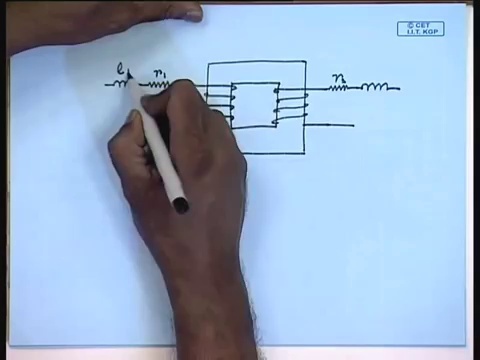 © CET
I.I.T. KGP
l r₁ r₂